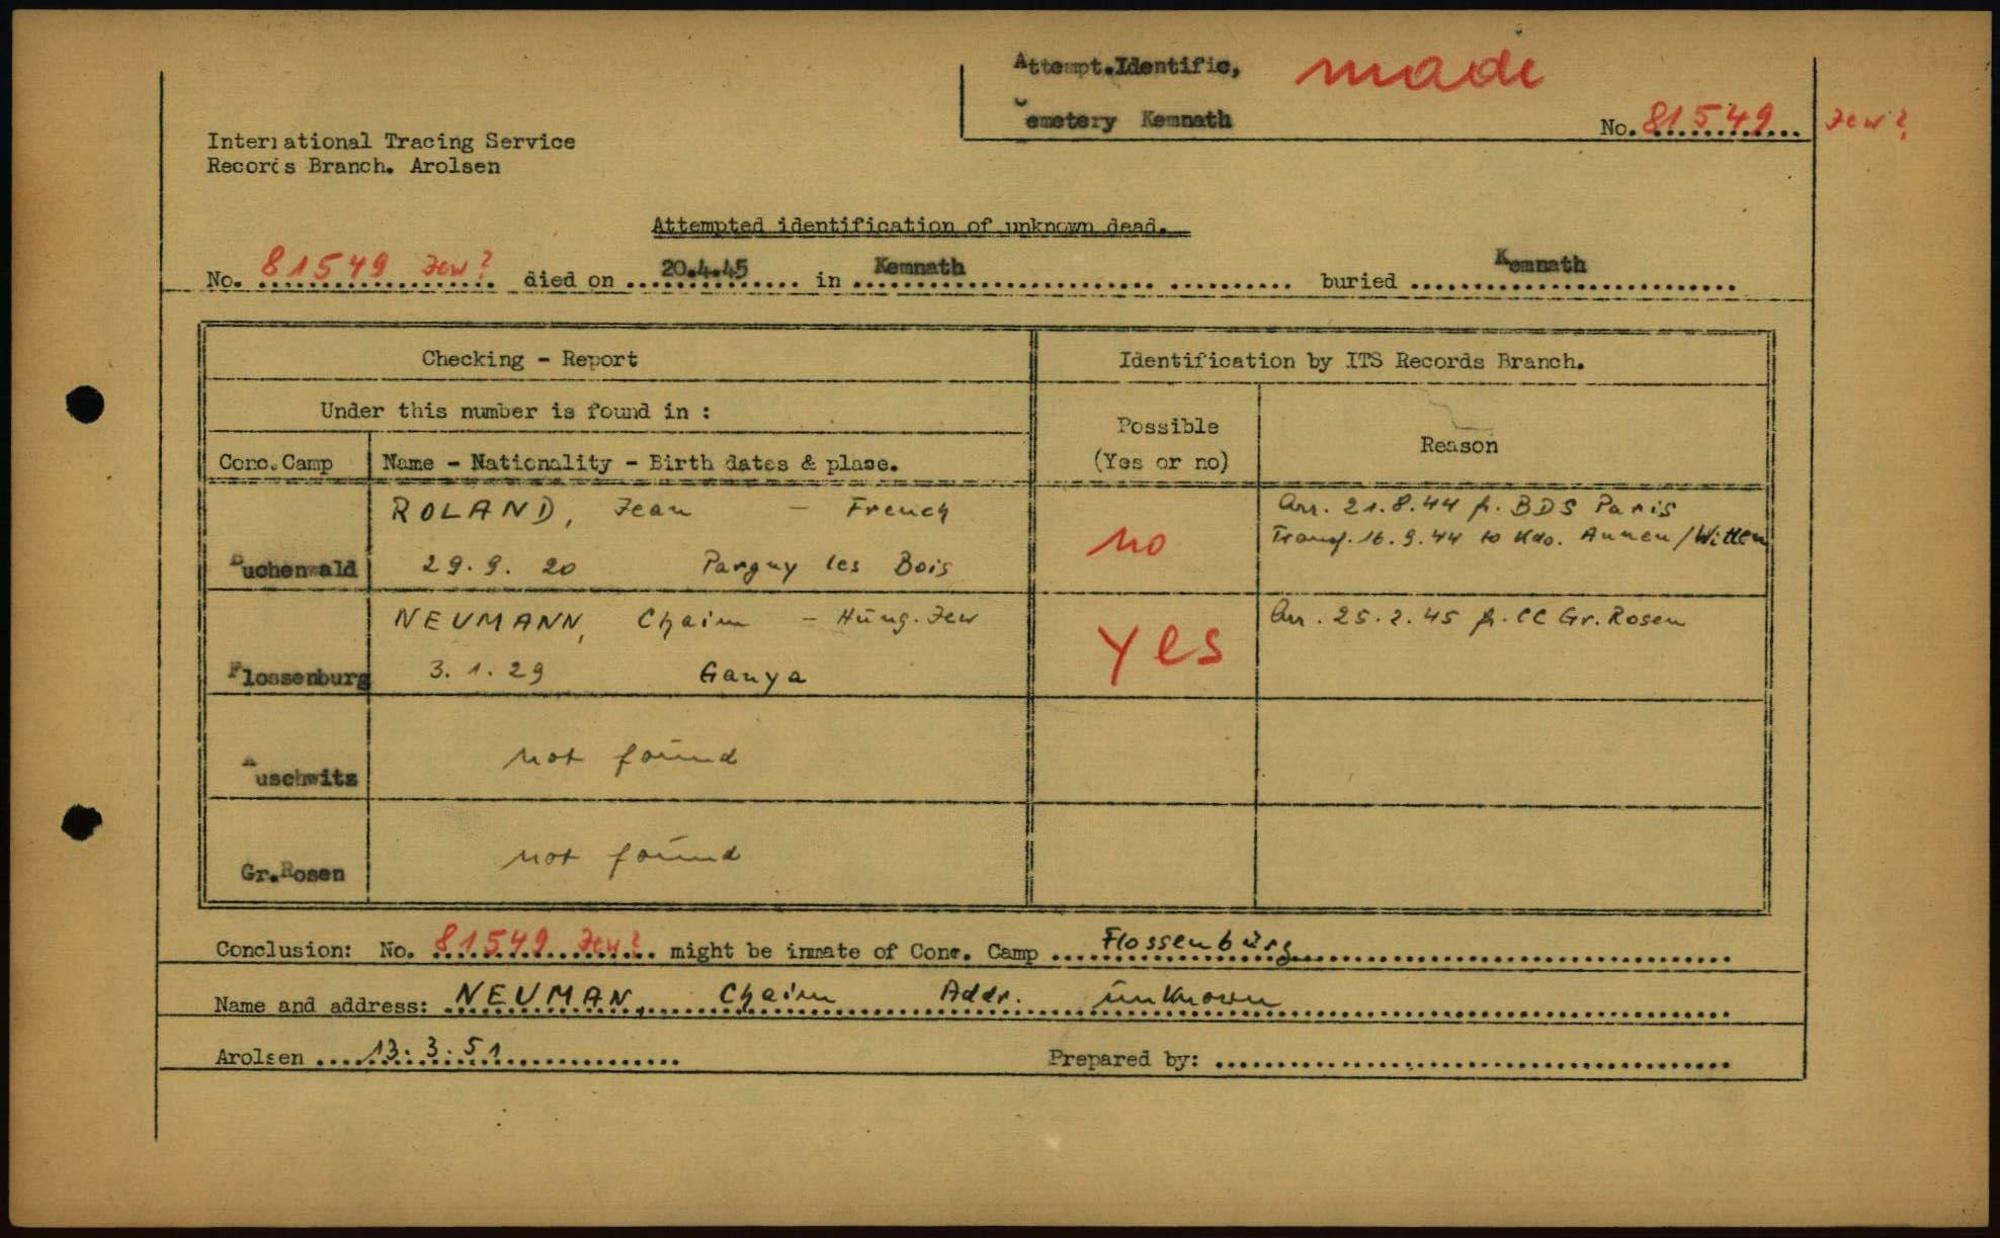 Attempt.Identific, made
Cemetery Kemnath
No. 81549 Jew?
International Tracing Service
Records Branch. Arolsen
Attempted identification of unknown dead.
No. 81549 Jew? died on 20.4.45 in Kemnath buried Kemnath
Checking - Report
Identification by ITS Records Branch.
Under this number is found in :
Possible
(Yes or no)
Reason
Conc.Camp
Name - Nationality - Birth dates & place.
Buchenwald
ROLAND, Jean - French
29.9.20 Parguy les Bois
no
Arr. 21.8.44 fr. BDS Paris
Transf. 16.9.44 to Kdo. Annen/Witten
Flossenburg
NEUMANN, Chaim - Hung. Jew
3.1.29 Ganya
yes
Arr. 25.2.45 fr. CC Gr. Rosen
Auschwitz
not found
Gr.Rosen
not found
Conclusion: No. 81549 Jew? might be inmate of Conc. Camp Flossenburg
Name and address: NEUMAN, Chaim Addr. unknown
Arolsen 13.3.51
Prepared by: